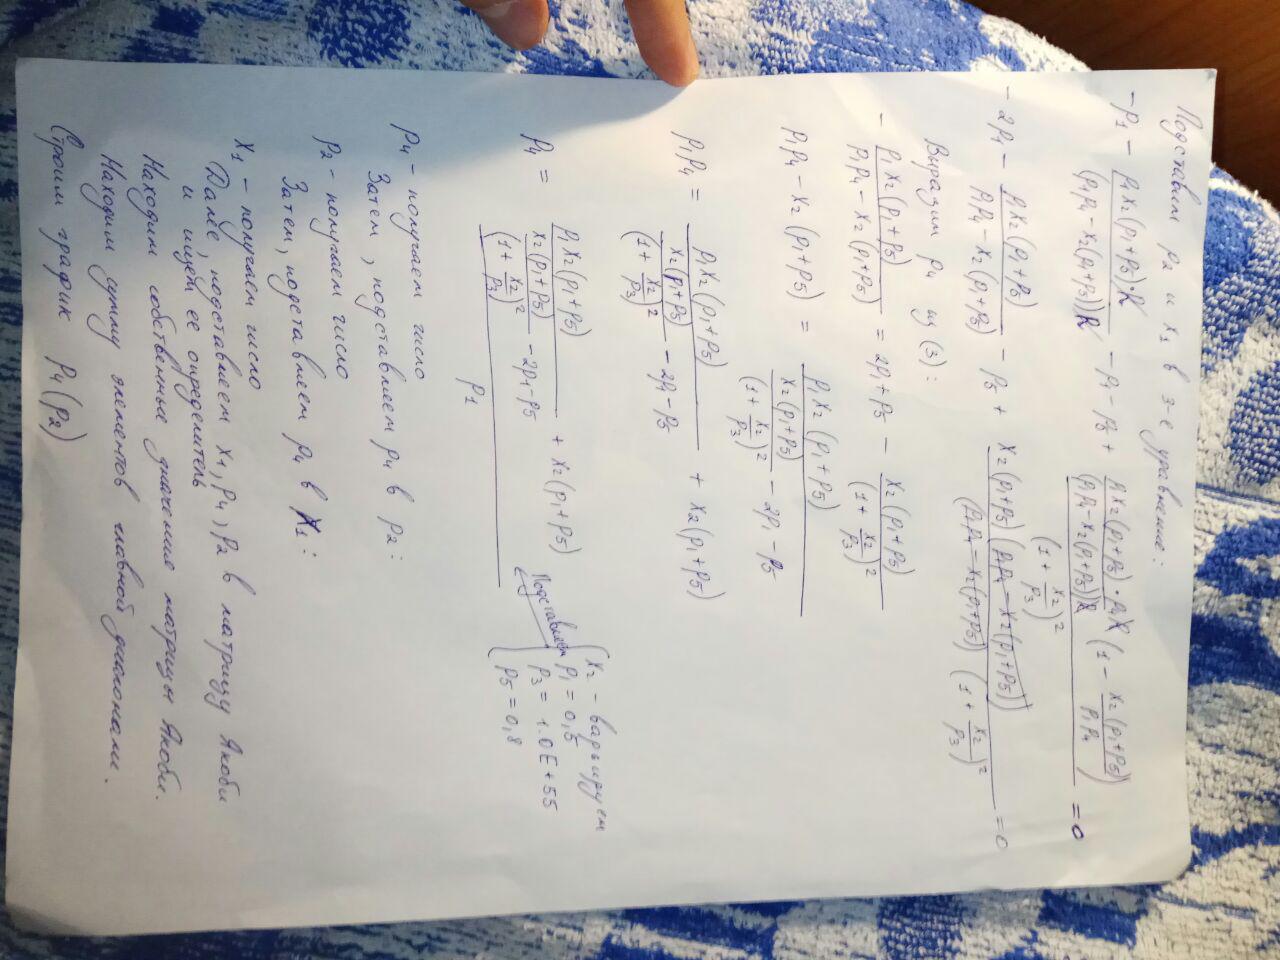 Подставим p₂ и x₁ в 3-е уравнение:
-p₁ - (p₁x₂(p₁+p₅)·R)/((p₁p₄-x₂(p₁+p₅))R) - p₁ - p₅ + ((p₁x₂(p₁+p₅)·p₄R)/((p₁p₄-x₂(p₁+p₅))R) (1 - (x₂(p₁+p₅))/(p₁p₄)))/((1+x₂/p₃)²) = 0
-2p₁ - (p₁x₂(p₁+p₅))/(p₁p₄-x₂(p₁+p₅)) - p₅ + (x₂(p₁+p₅)(p₁p₄-x₂(p₁+p₅)))/((p₁p₄-x₂(p₁+p₅))(1+x₂/p₃)²) = 0
Выразим p₄ из (3):
-(p₁x₂(p₁+p₅))/(p₁p₄-x₂(p₁+p₅)) = 2p₁+p₅ - (x₂(p₁+p₅))/((1+x₂/p₃)²)
p₁p₄ - x₂(p₁+p₅) = (p₁x₂(p₁+p₅))/((x₂(p₁+p₅))/((1+x₂/p₃)²) - 2p₁ - p₅)
p₁p₄ = (p₁x₂(p₁+p₅))/((x₂(p₁+p₅))/((1+x₂/p₃)²) - 2p₁ - p₅) + x₂(p₁+p₅)
p₄ = ((p₁x₂(p₁+p₅))/((x₂(p₁+p₅))/((1+x₂/p₃)²) - 2p₁ - p₅) + x₂(p₁+p₅))/p₁
Подставляем
x₂ - варьируем
p₁ = 0,5
p₃ = 1.0E+55
p₅ = 0,8
p₄ - получаем число
Затем, подставляем p₄ в p₂:
p₂ - получаем число
Затем, подставляем p₄ в x₁:
x₁ - получаем число
Далее, подставляем x₁, p₄, p₂ в матрицу Якоби
и ищем ее определитель
Находим собственные значения матрицы Якоби.
Находим сумму элементов главной диагонали.
Строим график p₄(p₂)